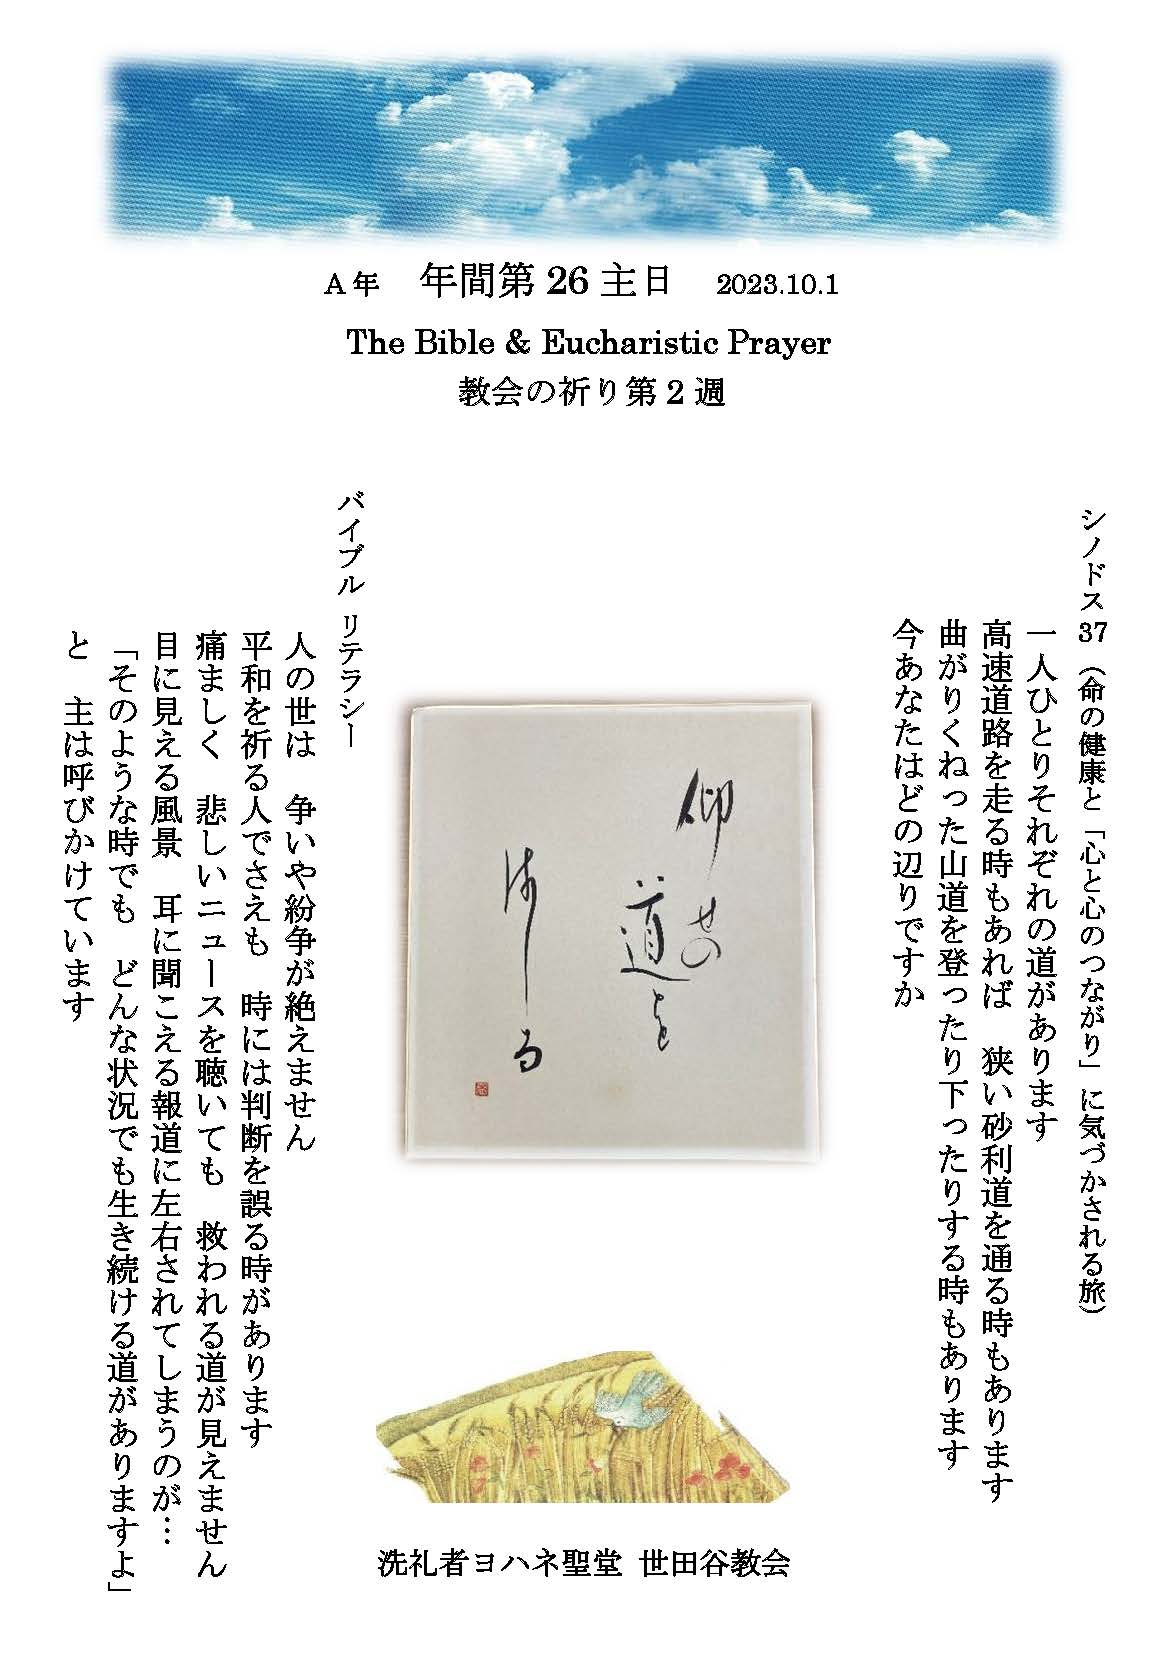 A年 年間第26主日 2023.10.1
The Bible & Eucharistic Prayer
教会の祈り第2週
シノドス37（命の健康と「心と心のつながり」に気づかされる旅）
一人ひとりそれぞれの道があります
高速道路を走る時もあれば 狭い砂利道を通る時もあります
曲がりくねった山道を登ったり下ったりする時もあります
今あなたはどの辺りですか
仰せの
道を
はしる
バイブル リテラシー
人の世は 争いや紛争が絶えません
平和を祈る人でさえも 時には判断を誤る時があります
痛ましく 悲しいニュースを聴いても 救われる道が見えません
目に見える風景 耳に聞こえる報道に左右されてしまうのが…
「そのような時でも どんな状況でも生き続ける道がありますよ」
と 主は呼びかけています
洗礼者ヨハネ聖堂 世田谷教会